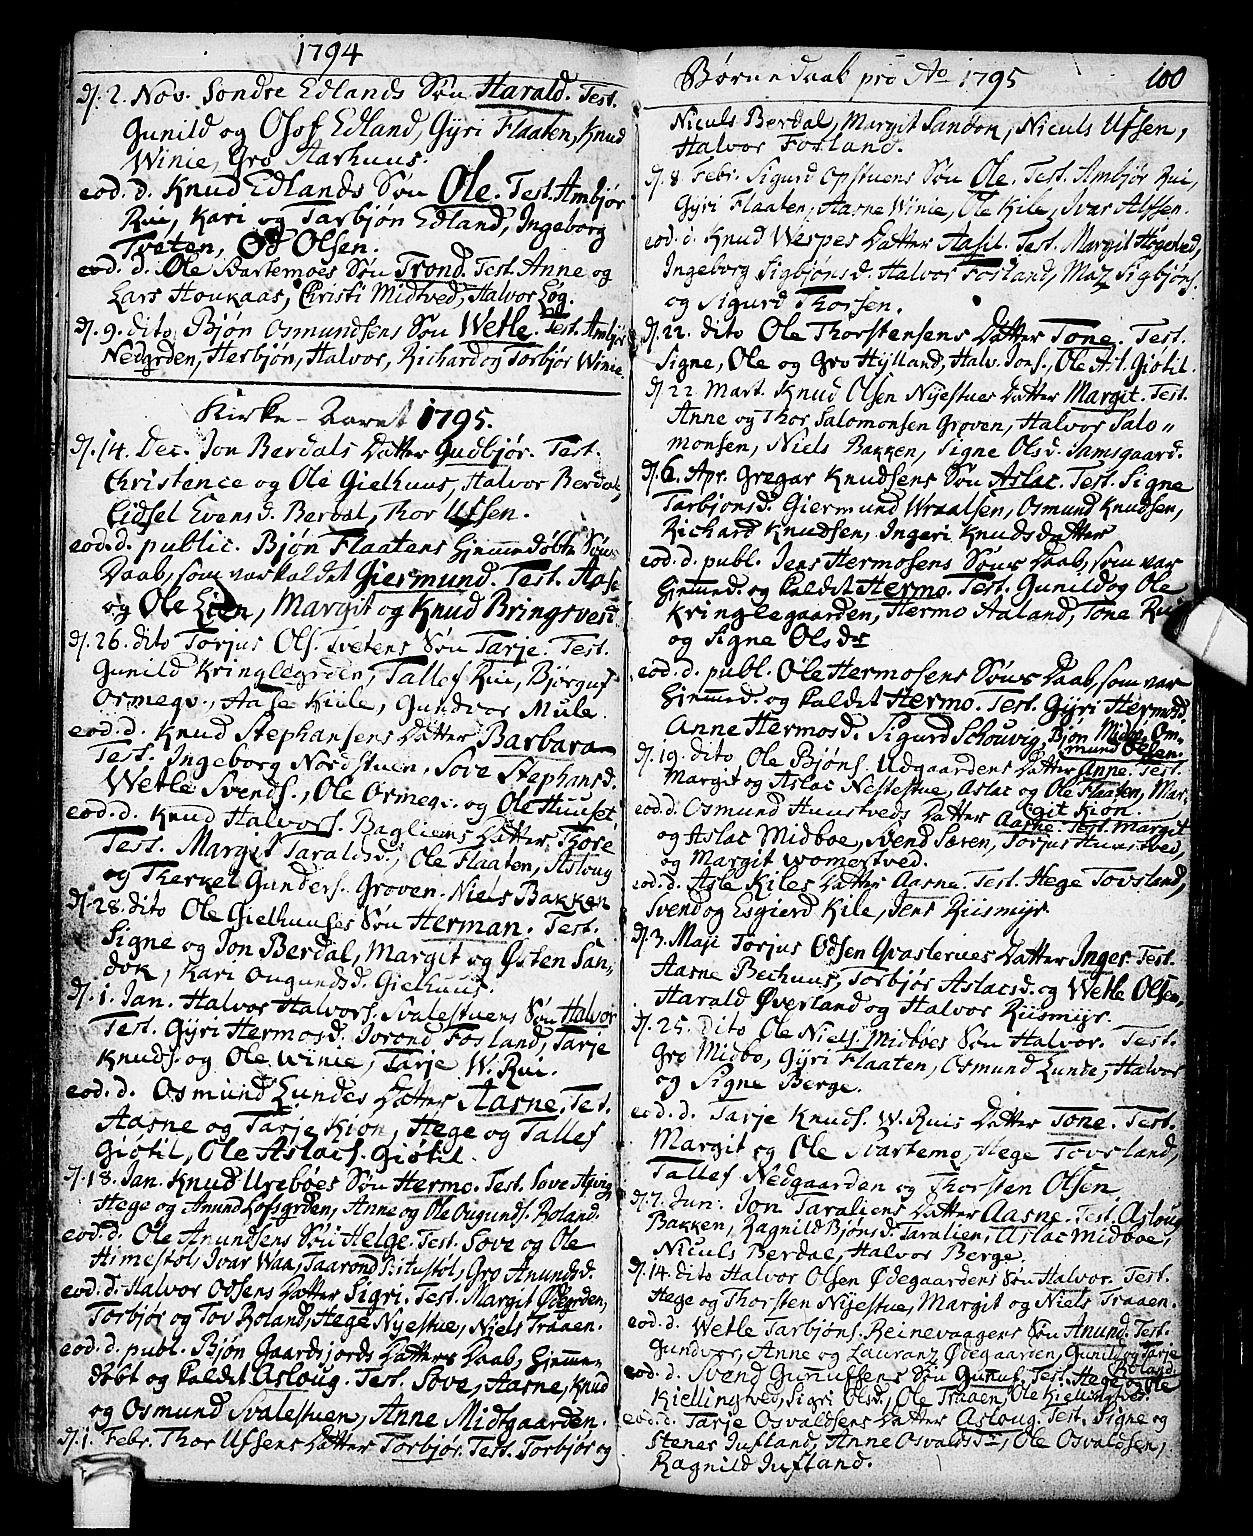 1794
d. 2. Nov. Sondre Edlands Søn Harald. Test.
Gunild og Olof Edland, Gÿri Flaaten, Knud
Winie, Gro Aarhuus.
eod. d. Knud Edlands Søn Ole. Test. Ambjør
Rui, Kari og Tarbjøn Edland, Ingeborg
Tveten, Olsen.
eod. d. Ole Svartemoes Søn Trond. Test. Anne og
Lars Houkaas, Christi Midtved, Halvor Løg.
d. 9. dito Bjøn Osmundsens Søn Wetle. Test. Ambjør
Nedgrden, Herbjøn, Halvor, Richard og Torbjør Winie.
Kirke-Aaret 1795.
d. 14. Dec. Jon Berdals Datter Gudbjør. Test.
Christence og Ole Gielhuus, Halvor Berdal,
Lidsel Evensd. Berdal, Thor Ufsen.
eod. d. public. Bjøn Flaatens hiemmedøbte Søns
Daab, som var kaldet Giermund. Test. Aase
og Ole Lien, Margit og Knud Bringsvert
d. 26. dito Torjus Ols. Tvetens Søn Tarje. Test.
Gunild Kringlegrden, Tallef Rui, Bjørguf
Ormegr., Aase Kiile, Gundvor Mule.
eod. d. Knud Stephansens Datter Barbara
Test. Ingeborg Nordstuen, Sove Stephansd.
Wetle Svends., Ole Ormegr. og Ole Huuset
eod. d. Knud Halvors. Bagliens Datter Thore
Test. Margit Taraldsd., Ole Flaaten, Aslaug
og Therkel Gunders. Groven. Niels Bakken
d. 28. dito Ole Gielhuuses Søn Herman. Test.
Signe og Jon Berdal, Margit og Østen San-
dok, Kari Ougundsd. Gielhuus.
d. 1. Jan. Halvor Halvors. Svalestuens Søn Halvor
Test. Gÿri Hermosd. Jorond Fosland, Tarje
Knuds. og Ole Winie, Tarje W. Rui.
eod. d. Osmund Lundes Datter Aasne. Test.
Aasne og Tarje Kion, Hege og Tallef
Giøtil, Ole Aslacs. Giøtil.
d. 18. Jan. Knud Urebøes Søn Hermo. Test. Sove Asvig,
Hege og Amund Lofsgrden, Anne og Ole Ougunds. Roland.
eod. d. Ole Anundsens Søn Helge. Test. Sove og Ole
Himestøl, Ivar Waa, Taarond Ritustøl, Gro Anundsd.
eod. d. Halvor Olsens Datter Sigri. Test. Margit Ødegrden,
Torbjør og Tov Roland, Hege Nÿestue, Niels Traaen.
eod. d. publ. Bjøn Gaardsjords Datters Daab, hiemme-
døbt og kaldet Asloug. Test. Sove, Aasne, Knud
og Osmund Svalestuen, Anne Midtgaarden.
d. 1. Febr. Thor Ufsens Datter Torbjør. Test. Torbjør og
Børne Daab pro Ao 1795
100
Niculs Berdal, Margit Sandok, Niculs Ufsen,
Halvor Fosland.
d. 8. Febr. Sigurd Opstuens Søn Ole. Test. Ambjør Rui,
Gÿri Flaaten, Aasne Winie, Ole Kile, Ivar Alfsen.
eod. d. Knud Wespes Datter Aasil. Test. Margit Høgetved,
Ingeborg Sigbjønsd. Halvor Fosland, Maz Sigbjøns.
og Sigurd Thorsen.
d. 22. dito Ole Thorstensens Datter Tone. Test.
Signe, Ole og Gro Hÿlland, Halv. Jons., Ole Asl. Giøtil.
d. 22 Mart. Knud Olsen Nÿestues Datter Margit. Test.
Anne og Thor Salomonsen Groven, Halvor Salo-
monsen, Niels Bakken, Signe Olsd. Samsgaard.
d. 6. Apr. Gregar Knudsens Søn Aslac. Test. Signe
Tarbjønsd. Giermund Wraalsen, Osmund Knudsen,
Richard Knudsen, Ingeri Knudsdatter
eod. d. publ. Jens Hermosens Søns Daab, som var
hiemmed. og kaldet Hermo. Test. Gunild og Ole
Kringlegaarden, Hermo Haland, Tone Rui
og Signe Olsdr
eod. d. publ. Ole Hermosens Søns Daab, som var
hiemmed. og kaldet Hermo. Test. Gÿri Hermosd.
Anne Hermosd. Sigurd Schouvig, Bjøn Midbø, Os-
mund Olsen.
d. 19. dito, Ole Bjøns. Udgaardens Datter Anne. Test.
Margit og Aslac Nestestue, Aslac og Ole Flaaten, Mar-
git Kion.
eod. d. Osmund Huustveds Datter Aasne. Test. Margit
og Aslac Midboe, Svend Særen, Torjus Huustved,
og Margit Womestved.
eod. d. Asle Kiles Datter Aasne. Test. Hege Tovsland,
Svend og Esgierd Kile, Jens Riismÿr.
d. 3. Maji Torjus Olsen Graslernes Datter Inger. Test.
Aasne Bechuus, Torbjør Aslacsd. og Wetle Olsen,
Harald Øverland og Halvor Riismÿr.
d. 25. dito Ole Niels. Midbøes Søn Halvor. Test.
Gro Midbø, Gÿri Flaaten, Osmund Lunde, Halvor
og Signe Berge.
eod. d. Tarje Knuds. W. Ruis Datter Tone. Test.
Margit og Ole Svartemo, Hege Tovsland,
Tallef Nedgaarden og Thorsten Olsen.
d. 7. Jun. Jon Taraliens Datter Aasne. Test. Asloug
Bakken, Ragnild Bjønsd. Taralien, Aslac Midboe,
Niculs Berdal, Halvor Berge.
d. 14. dito Halvor Olsen Ødegaardens Søn Halvor. Test.
Hege og Thorsten Nÿestue, Margit og Niels Traaen.
eod. d. Wetle Tarbjøns. Reinevaagens Søn Anund. Test.
Gundvor, Anne og Lauranz Ødegaarden, Gunild og Tarje
Roland.
eod. d. Svend Gunnufsens Søn Gunuf. Test. Hege og Ole
Kiellingtved, Sigri Olsd., Ole Traaen, Ole Kiellingtved.
eod. d. Tarje Osvaldsens Datter Asloug. Test. Signe og
Stener Jufland, Anne Osvaldsdr, Ole Osvaldsen,
Ragnild Jufland.